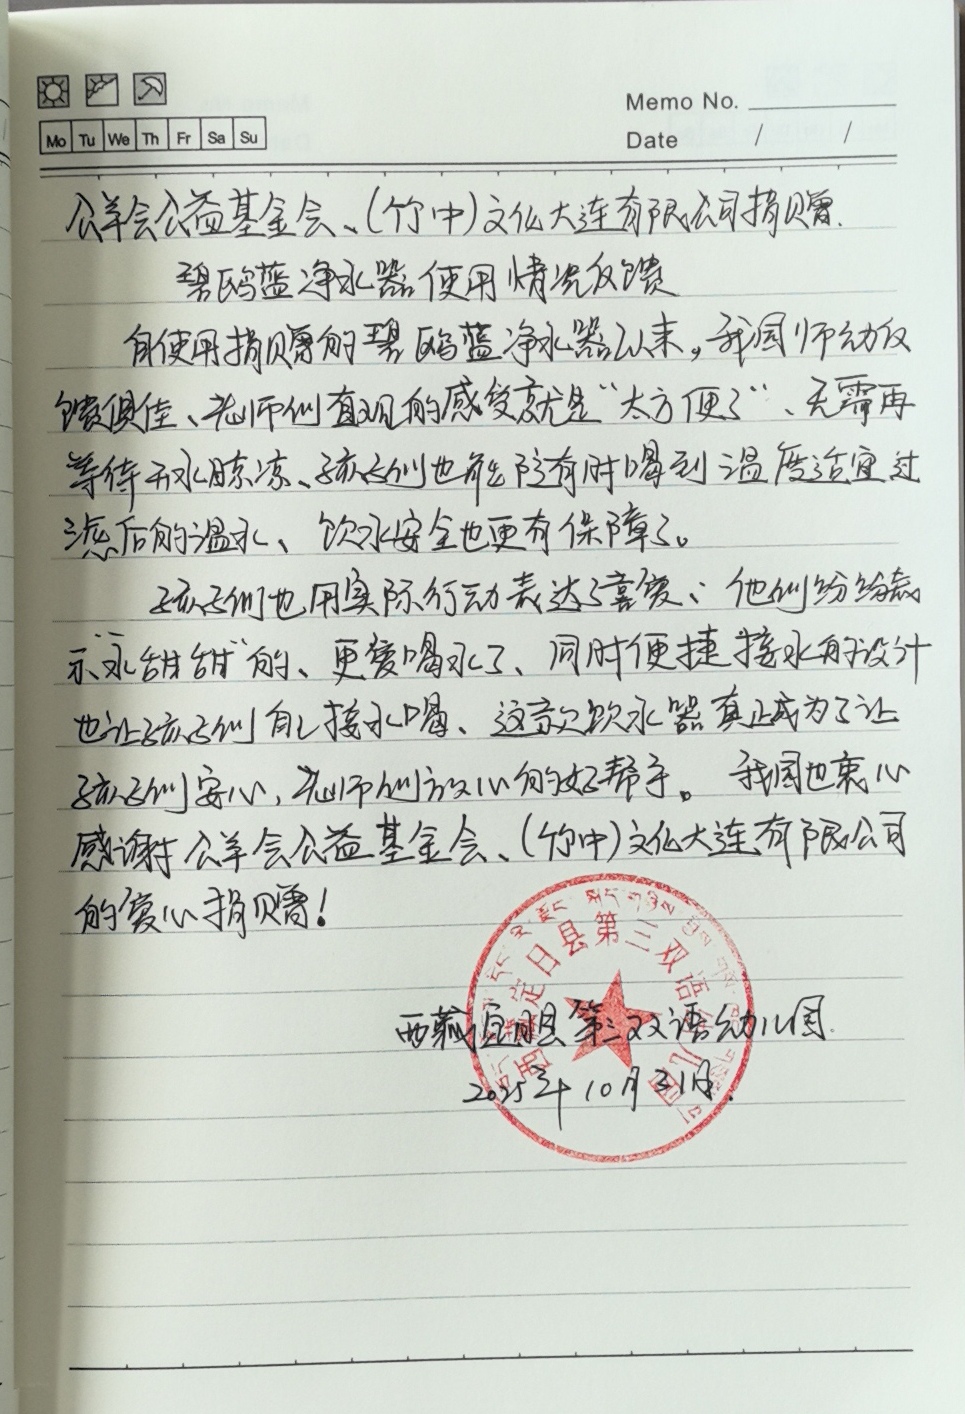 Memo No.
Mo Tu We Th Fr Sa Su
Date / /
公羊会公益基金会、(竹中)文化大连有限公司捐赠.
碧鸥蓝净水器使用情况反馈
自使用捐赠的碧鸥蓝净水器以来，我园师幼反
馈俱佳、老师们直观的感受就是“太方便了”、无需再
等待开水晾凉、孩子们也能随时喝到温度适宜过
滤后的温水、饮水安全也更有保障了。
孩子们也用实际行动表达了喜爱：他们纷纷表
示“水甜甜”的、更爱喝水了、同时便捷接水的设计
也让孩子们自己接水喝、这款饮水器真正成为了让
孩子们安心，老师们放心的好帮手。我园也衷心
感谢 公羊会公益基金会、(竹中)文化大连有限公司
的爱心捐赠！
西藏定日县第三双语幼儿园.
2025年10月31日.
西藏定日县第三双语幼儿园